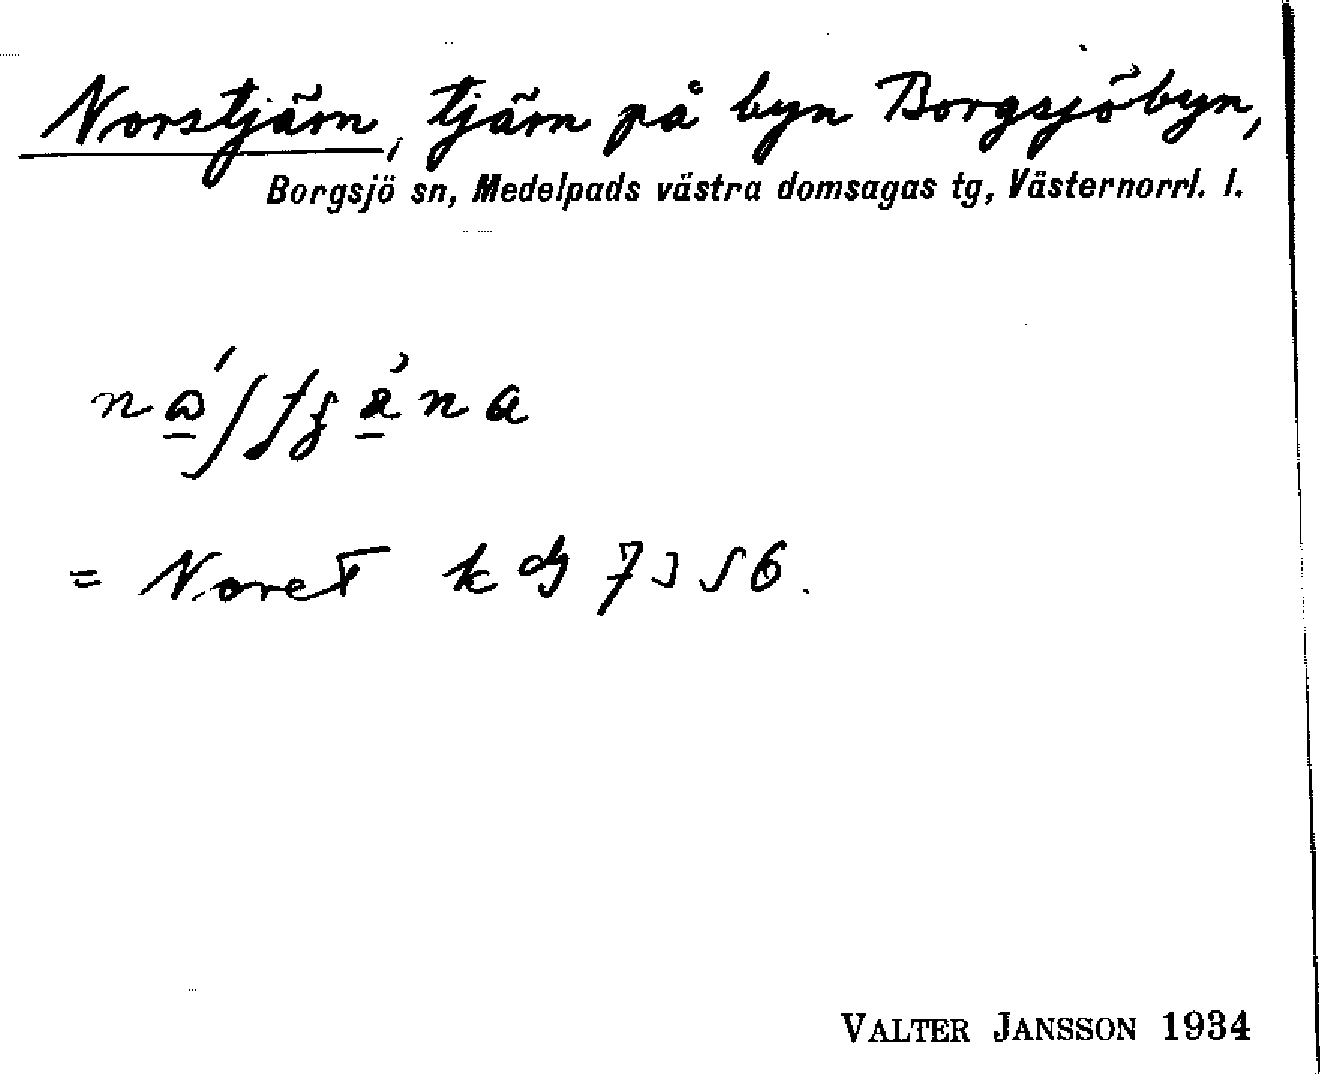 Norstjärn, tjärn på byn Borgsjöbyn,
Borgsjö sn, Medelpads västra domsagas tg, Västernorrl. l.
= Noret
VALTER JANSSON 1934